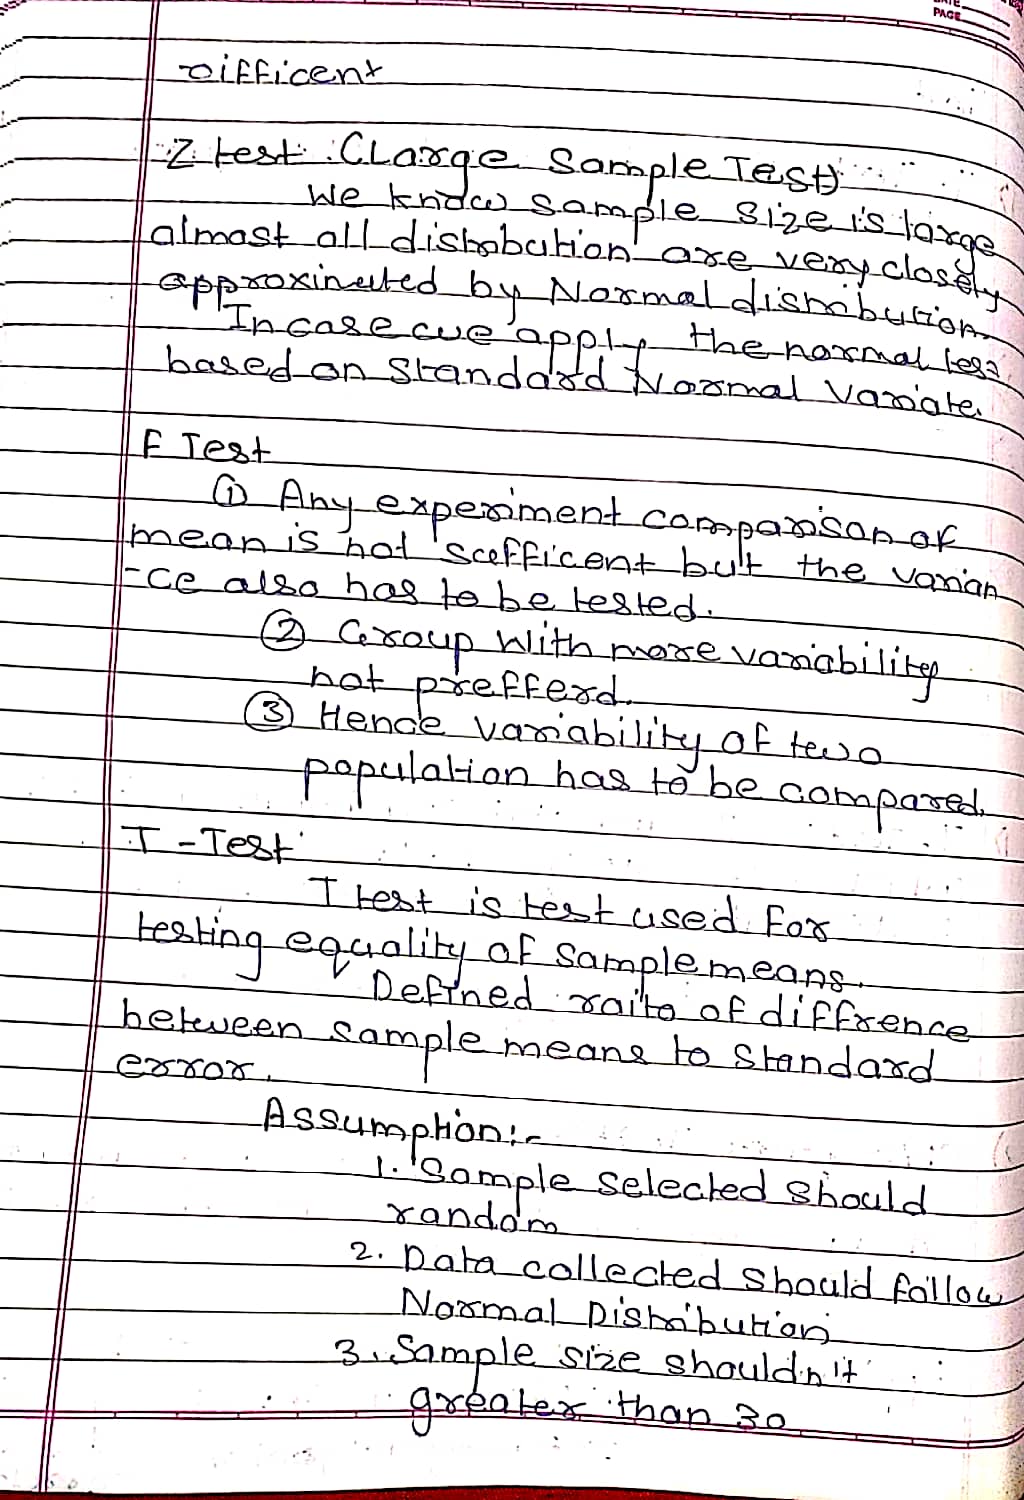 PAGE
Difficent
Z test (Large Sample Test)
We know sample size is large
almost all distribution are very closely
approximated by Normal distribution.
In case we apply the normal test
based on Standard Normal Variate.
F Test
① Any experiment comparison of
mean is not sufficent but the varian
-ce also has to be tested.
② Group With more variability
not prefferd.
③ Hence variability of two
population has to be compared.
T-Test
T test is test used for
testing equality of sample means.
Defined raito of diffrence
between sample means to Standard
error.
Assumption:-
1. Sample selected should
random
2. Data collected should follow
Normal Distribution
3. Sample size shouldn't
greater than 30